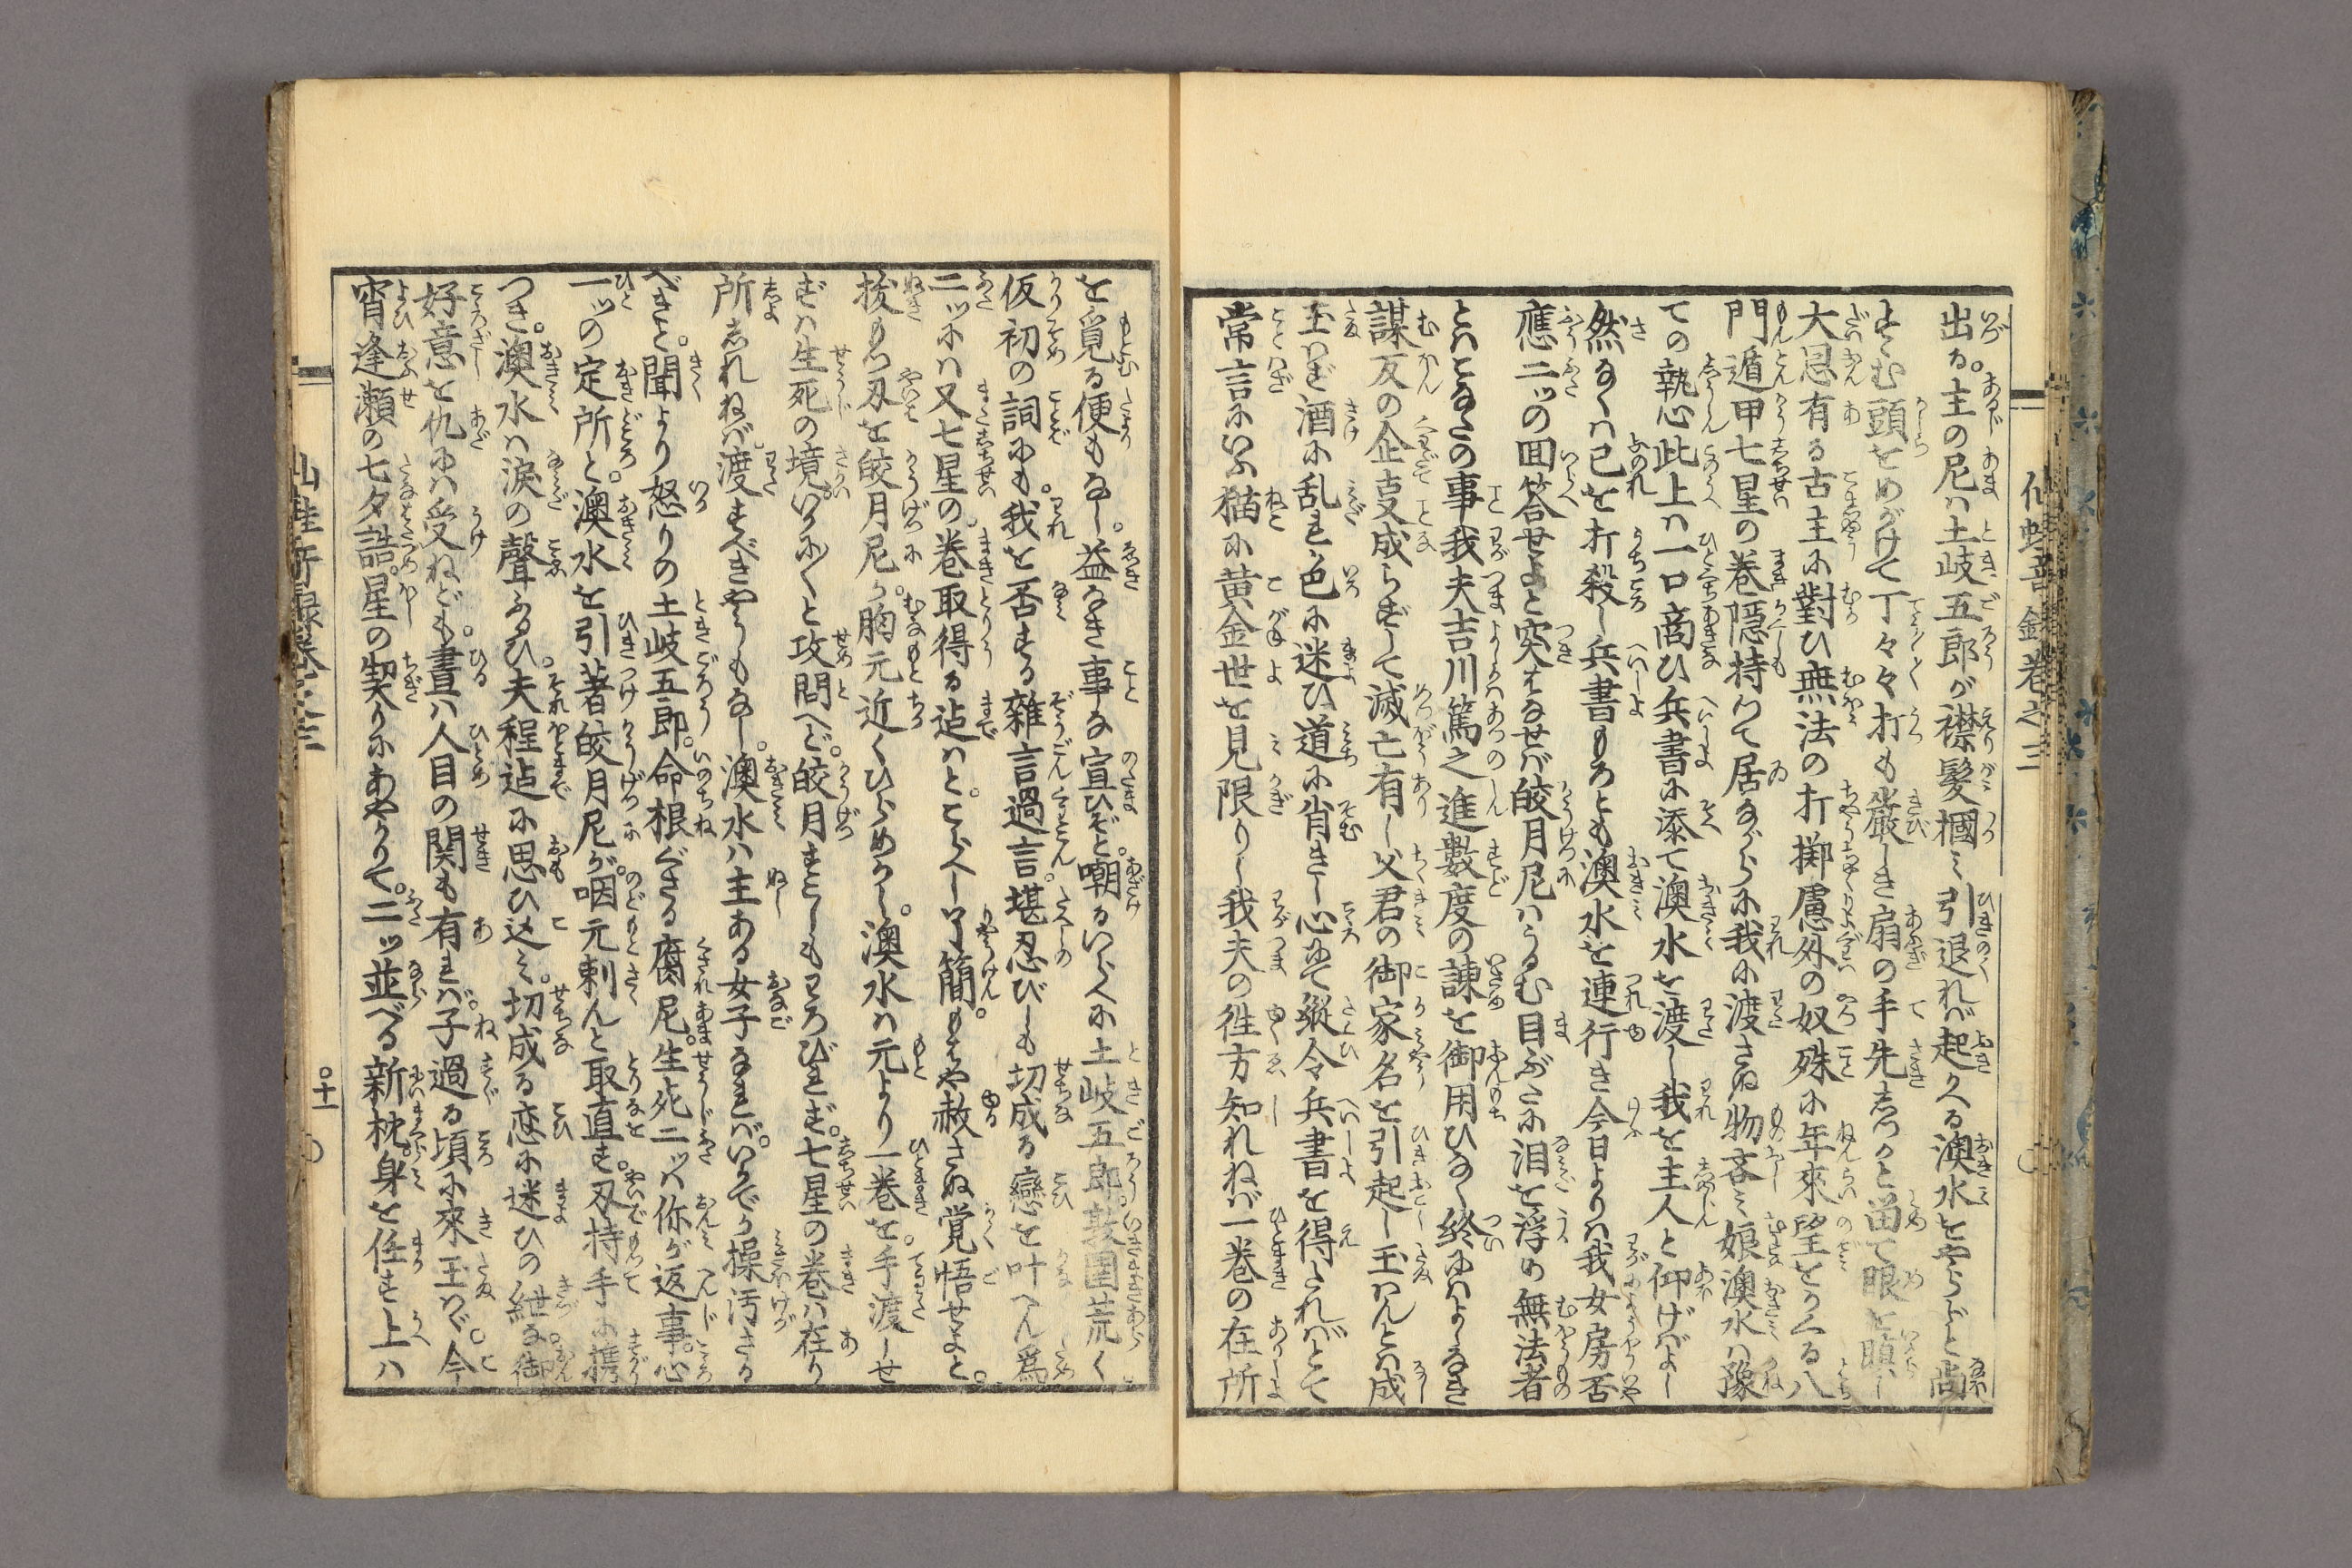 出る。主の尼ハ土岐五郎が襟髪摑ミ引退れバ起かへる澳水をやらじと尚
すゝむ頭をめがけて丁々々打も嚴しき扇の手先志つかと留て眼を瞋し
大恩有る古主に對ひ無法の打擲慮外の奴殊に年來望をかくる八
門遁甲七星の巻隠持つて居ながらに我に渡さぬ物吝ミ娘澳水ハ豫
ての執心此上ハ一口商ひ兵書に添て澳水を渡し我を主人と仰げバよし
然なくハ己を打殺し兵書もろとも澳水を連行き今日よりハ我女房否
應二ッの回答せよと突はなせバ皎月尼ハうるむ目ぶたに泪を浮め無法者
とハこなたの事我夫吉川篤之進數度の諌を御用ひなく終にハよしなき
謀反の企支成らずして滅亡有し父君の御家名を引起し玉ハんとハ成
玉ハず酒に乱れ色に迷ひ道に背きし心にて縱令兵書を得たれバとて
常言にいふ猫に黄金世を見限りし我夫の徃方知れねバ一巻の在所
を覓る便もなし。益なき事な宣ひぞと。嘲るいらへに土岐五郎。敦圉荒く
仮初の詞にも。我を否する雜言過言。堪忍びしも切成る戀を叶へん爲
二ッにハ又七星の。巻取得る迠ハと。こらへし了簡。もはや赦さぬ覚悟せよと。
抜もつ刄を皎月尼が。胸元近くひらめかし。澳水ハ元より一巻を。手渡しせ
ずハ生死の境。いかに〳〵と攻問へど。皎月すこしもわろびれず。七星の巻ハ在り
所志れねバ。渡すべきやうもなし。澳水ハ主ある女子なれバ。いかでか操汚さる
べきと。聞より怒りの土岐五郎。命根ぐさる腐尼。生死二ッハ你が返事。心
一ッの定所と。澳水を引著皎月尼が。咽元刺んと取直す。刄持手に携
つき。澳水ハ涙の聲ふるひ。夫程迠に思ひ込ミ。切成る恋に迷ひの紲な御
好意を仇にハ受ねども。晝ハ人目の関も有れバ。子過る頃に來玉ハゞ。今
宵逢瀬の七夕詰。星の契りにあやかりて。二ッ並べる新枕。身を任す上ハ
巻之三
十一